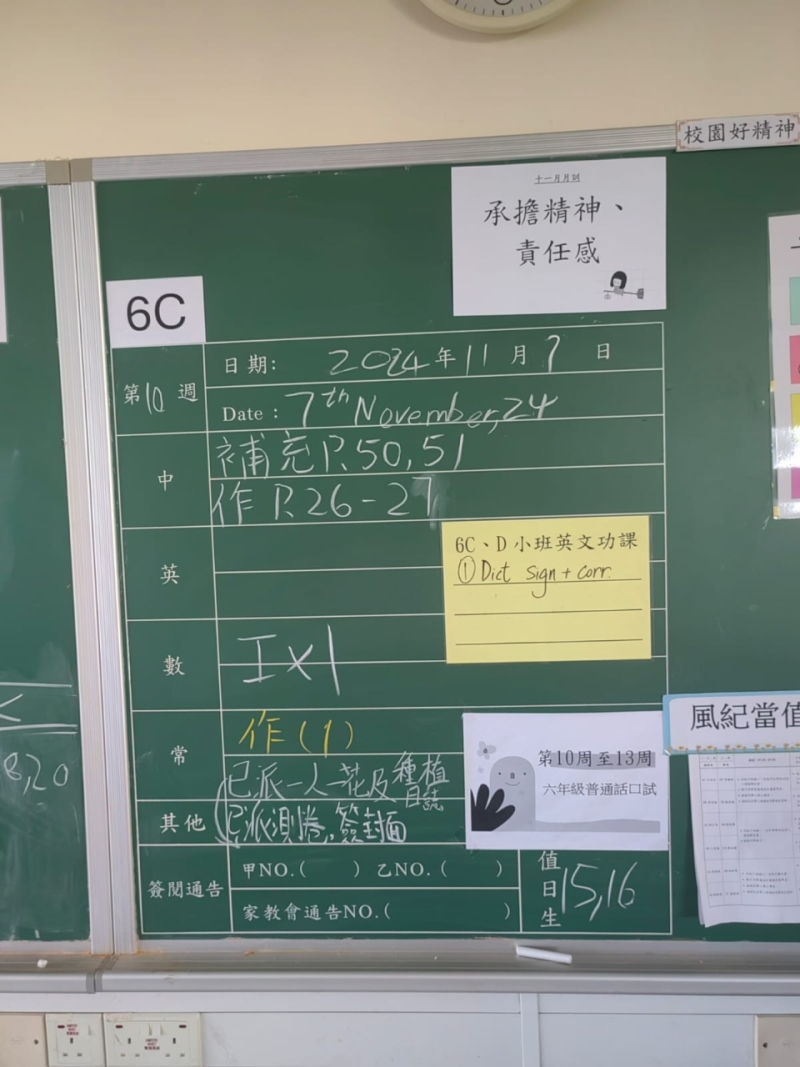 校園好精神
十一月月訓
承擔精神、
責任感
6C
第10週
日期: 2024年11月7日
Date : 7th November, 24
中
補充 P.50,51
作 P.26-27
英
6C、D小班英文功課
① Dict sign + corr.
數
工x1
常
作(1)
已派一人一花及種植日誌
其他
已派測卷,簽封面
第10周至13周
六年級普通話口試
簽閱通告
甲NO.( ) 乙NO.( )
家教會通告NO.( )
值日生 15,16
風紀當值
8,20